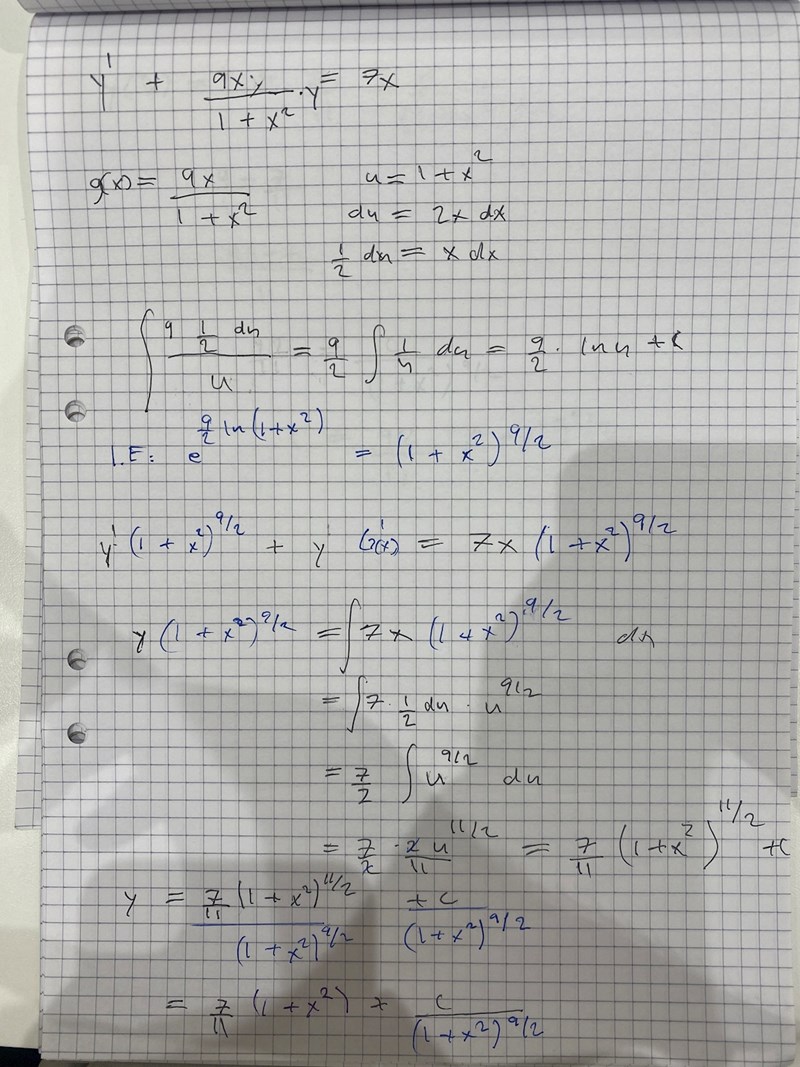 y' + 9x/(1 + x²) · y = 7x
g(x) = 9x/(1 + x²)
u = 1 + x²
du = 2x dx
1/2 du = x dx
∫ (9 1/2 du)/u = 9/2 ∫ 1/u du = 9/2 · ln u + C
I.E: e^(9/2 ln(1+x²)) = (1 + x²)^(9/2)
y' (1 + x²)^(9/2) + y = 7x (1 + x²)^(9/2)
y (1 + x²)^(9/2) = ∫ 7x (1 + x²)^(9/2) dx
= ∫ 7 · 1/2 du · u^(9/2)
= 7/2 ∫ u^(9/2) du
= 7/2 · (2 u^(11/2))/11 = 7/11 (1+x²)^(11/2) + C
y = (7/11 (1 + x²)^(11/2))/((1 + x²)^(9/2)) (+ C)/((1+x²)^(9/2))
= 7/11 (1 + x²) + C/((1+x²)^(9/2))